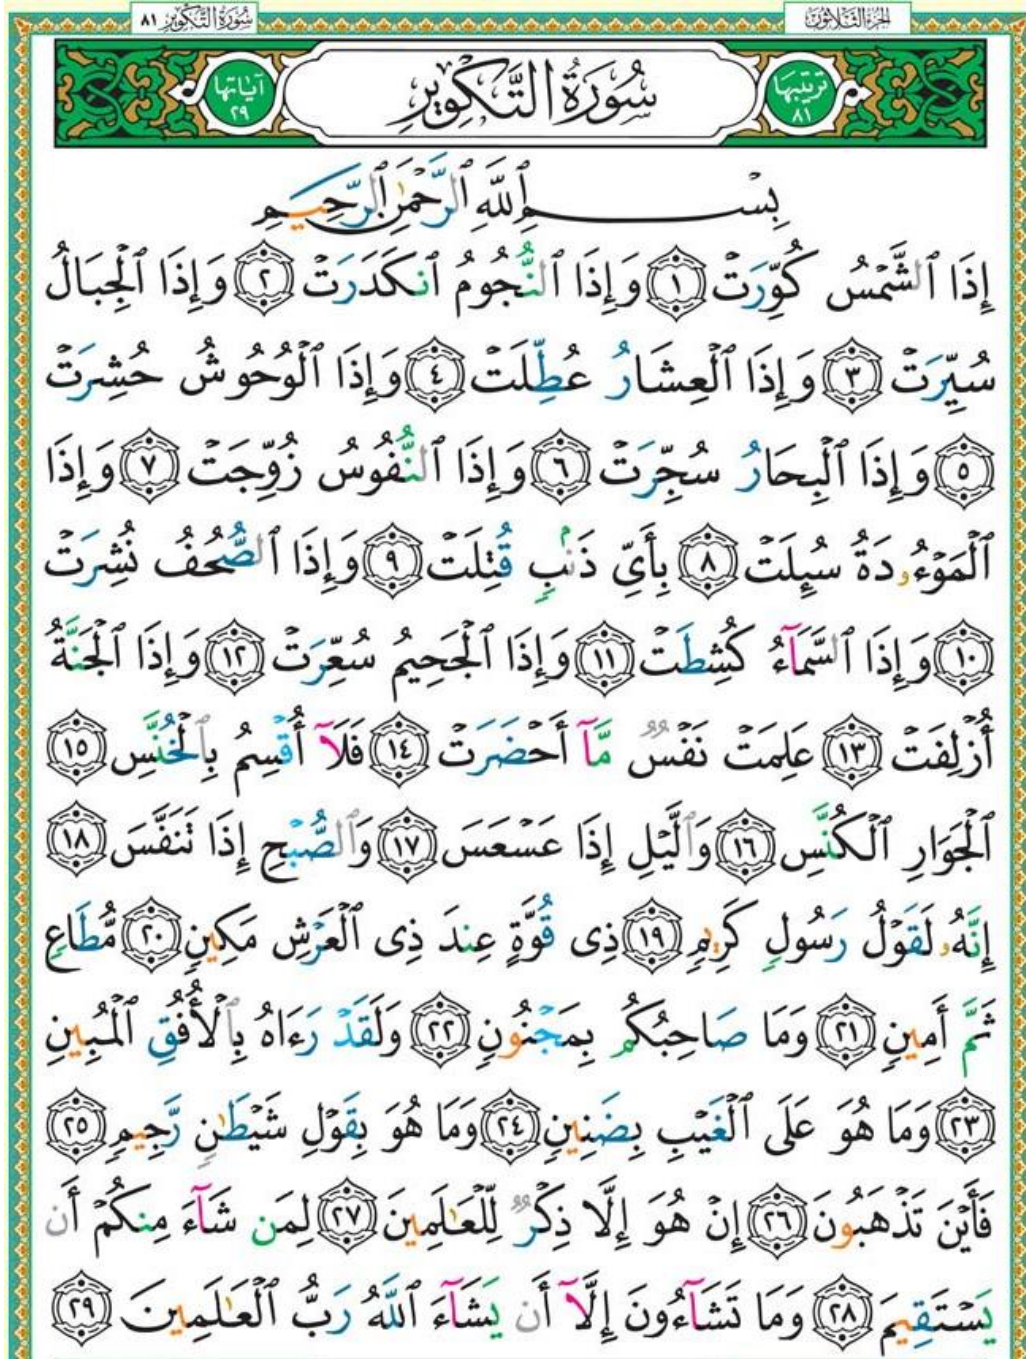 الجزء الثلاثون
سورة التكوير ٨١
ترتيبها ٨١
سُورَةُ التَّكْوِيرِ
آياتها ٢٩
بِسْمِ ٱللَّهِ ٱلرَّحْمَٰنِ ٱلرَّحِيمِ
إِذَا ٱلشَّمْسُ كُوِّرَتْ ١ وَإِذَا ٱلنُّجُومُ ٱنكَدَرَتْ ٢ وَإِذَا ٱلْجِبَالُ
سُيِّرَتْ ٣ وَإِذَا ٱلْعِشَارُ عُطِّلَتْ ٤ وَإِذَا ٱلْوُحُوشُ حُشِرَتْ
٥ وَإِذَا ٱلْبِحَارُ سُجِّرَتْ ٦ وَإِذَا ٱلنُّفُوسُ زُوِّجَتْ ٧ وَإِذَا
ٱلْمَوْءُۥدَةُ سُئِلَتْ ٨ بِأَيِّ ذَنۢبٍ قُتِلَتْ ٩ وَإِذَا ٱلصُّحُفُ نُشِرَتْ
١٠ وَإِذَا ٱلسَّمَآءُ كُشِطَتْ ١١ وَإِذَا ٱلْجَحِيمُ سُعِّرَتْ ١٢ وَإِذَا ٱلْجَنَّةُ
أُزْلِفَتْ ١٣ عَلِمَتْ نَفْسٌ مَّآ أَحْضَرَتْ ١٤ فَلَآ أُقْسِمُ بِٱلْخُنَّسِ ١٥
ٱلْجَوَارِ ٱلْكُنَّسِ ١٦ وَٱلَّيْلِ إِذَا عَسْعَسَ ١٧ وَٱلصُّبْحِ إِذَا تَنَفَّسَ ١٨
إِنَّهُۥ لَقَوْلُ رَسُولٍ كَرِيمٍ ١٩ ذِى قُوَّةٍ عِندَ ذِى ٱلْعَرْشِ مَكِينٍ ٢٠ مُّطَاعٍ
ثَمَّ أَمِينٍ ٢١ وَمَا صَاحِبُكُم بِمَجْنُونٍ ٢٢ وَلَقَدْ رَءَاهُ بِٱلْأُفُقِ ٱلْمُبِينِ
٢٣ وَمَا هُوَ عَلَى ٱلْغَيْبِ بِضَنِينٍ ٢٤ وَمَا هُوَ بِقَوْلِ شَيْطَٰنٍ رَّجِيمٍ ٢٥
فَأَيْنَ تَذْهَبُونَ ٢٦ إِنْ هُوَ إِلَّا ذِكْرٌ لِّلْعَٰلَمِينَ ٢٧ لِمَن شَآءَ مِنكُمْ أَن
يَسْتَقِيمَ ٢٨ وَمَا تَشَآءُونَ إِلَّآ أَن يَشَآءَ ٱللَّهُ رَبُّ ٱلْعَٰلَمِينَ ٢٩